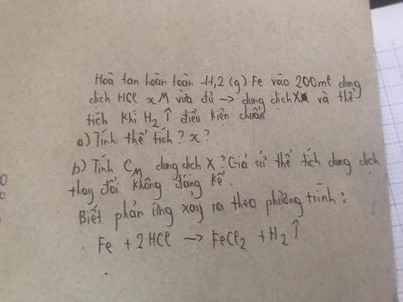 Hoà tan hoàn toàn 11,2 (g) Fe vào 200ml dung
dịch HCl x M vừa đủ → dung dịch X và thể
tích khí H2 ↑ điều kiện chuẩn
a) Tính thể tích? x?
b) Tính CM dung dịch X? Giả sử thể tích dung dịch
thay đổi không đáng kể.
Biết phản ứng xảy ra theo phương trình:
Fe + 2HCl → FeCl2 + H2 ↑